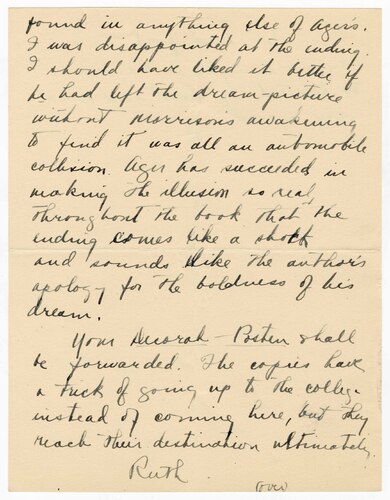 found in anything else of Ager's.
I was disappointed at the ending.
I should have liked it better if
he had left the dream-picture
without Morrison's awakening
to find it was all an automobile
collision. Ager has succeeded in
making the illusion so real
throughout the book that the
ending comes like a shock
and sounds like the author's
apology for the boldness of his
dream.
Your Decorah-Posten shall
be forwarded. The copies have
a trick of going up to the college
instead of coming here, but they
reach their destination ultimately.
Ruth
(over)